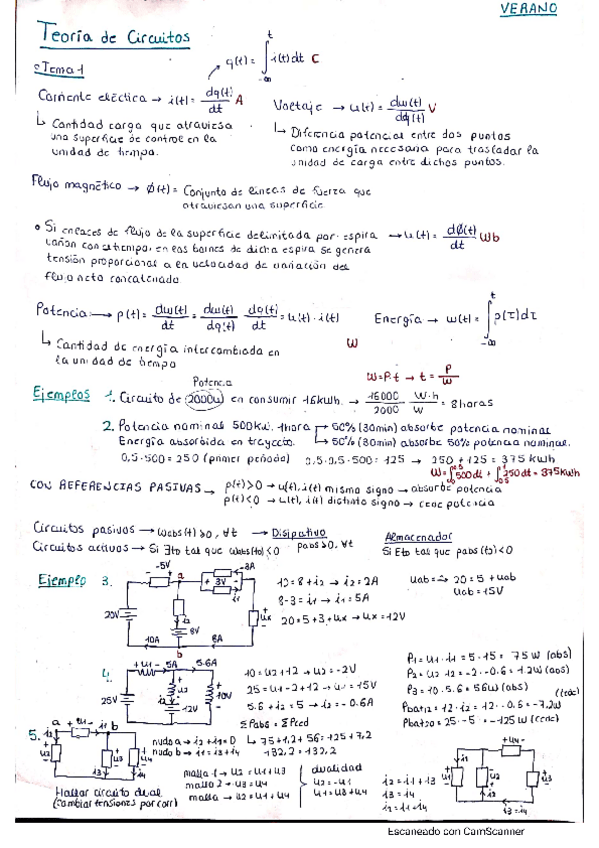 VERANO
Teoría de Circuitos
Tema 1
q(t) = ∫ i(t) dt C
t
-∞
Corriente eléctrica → i(t) = dq(t)/dt A
Cantidad carga que atraviesa
una superficie de control en la
unidad de tiempo.
Voltaje → u(t) = dw(t)/dq(t) V
Diferencia potencial entre dos puntos
como energía necesaria para trasladar la
unidad de carga entre dichos puntos.
Flujo magnético → ϕ(t) = Conjunto de líneas de fuerza que
atraviesan una superficie
Si enlaces de flujo de la superficie delimitada por espira → u(t) = dϕ(t)/dt Wb
varían con el tiempo, en los bornes de dicha espira se genera
tensión proporcional a la velocidad de variación del
flujo neto concatenado
Potencia → p(t) = dw(t)/dt = dw(t)/dq(t) · dq(t)/dt = u(t) · i(t)
W
Cantidad de energía intercambiada en
la unidad de tiempo
Energía → w(t) = ∫ p(τ) dτ
t
-∞
W = P·t → t = P/W
Potencia
Ejemplos 1. Circuito de 2000W en consumir 16kWh. → 16000/2000 W·h/W = 8 horas
2. Potencia nominal 500kW. 1hora → 50% (30min) absorbe potencia nominal
Energía absorbida en trayecto. → 50% (30min) absorbe 50% potencia nominal.
0,5·500 = 250 (primer periodo) 0,5·0,5·500 = 125 → 250 + 125 = 375 kWh
CON REFERENCIAS PASIVAS → p(t)>0 → u(t), i(t) mismo signo → absorbe potencia
p(t)<0 → u(t), i(t) distinto signo → cede potencia
Circuitos pasivos → wabs(t) ≥0, ∀t → Disipativo
pabs ≥0, ∀t
Almacenador
Si ∃to tal que pabs(to)<0
Circuitos activos → Si ∃to tal que wabs(to)<0
Ejemplo 3.
-5V
a
3V
-3A
i1
20V
i2
8V
ux
10A
b
8A
10 = 8 + i2 → i2 = 2A
8-3 = i1 → i1 = 5A
20 = 5 + 3 + ux → ux = 12V
uab = → 20 = 5 + uab
uab = 15V
4.
+ u1 - 5A
5.6A
25V
u2
i2
12V
10V
10 = u2 + 12 → u2 = -2V
25 = u1 - 2 + 12 → u1 = 15V
5.6 + i2 = 5 → i2 = -0.6A
Σ Pabs = Σ Pced
75 + 1,2 + 56 = 125 + 7,2
132,2 = 132,2
P1 = u1 · i1 = 5 · 15 = 75W (abs)
P2 = u2 · i2 = -2 · -0.6 = 1.2W (abs)
P3 = 10 · 5.6 = 56W (abs)
(ced)
Pbat12 = 12 · i2 = 12 · -0.6 = -7.2W
5.
a
b
i2
u2
u3
u4
i3
i4
nudo a → i2 + i1 = 0
nudo b → i1 = i3 + i4
Hallar circuito dual
(cambiar tensiones por corr)
malla 1 → u2 = u1 + u3
malla 2 → u3 = u4
malla → u2 = u1 + u4
dualidad
u2 = -u1
u1 = u3 + u4
i2 = i1 + i3
i3 = i4
i2 = i1 + i4
u4
u1
u2
u3
i1
i2
i3 = i4
Escaneado con CamScanner